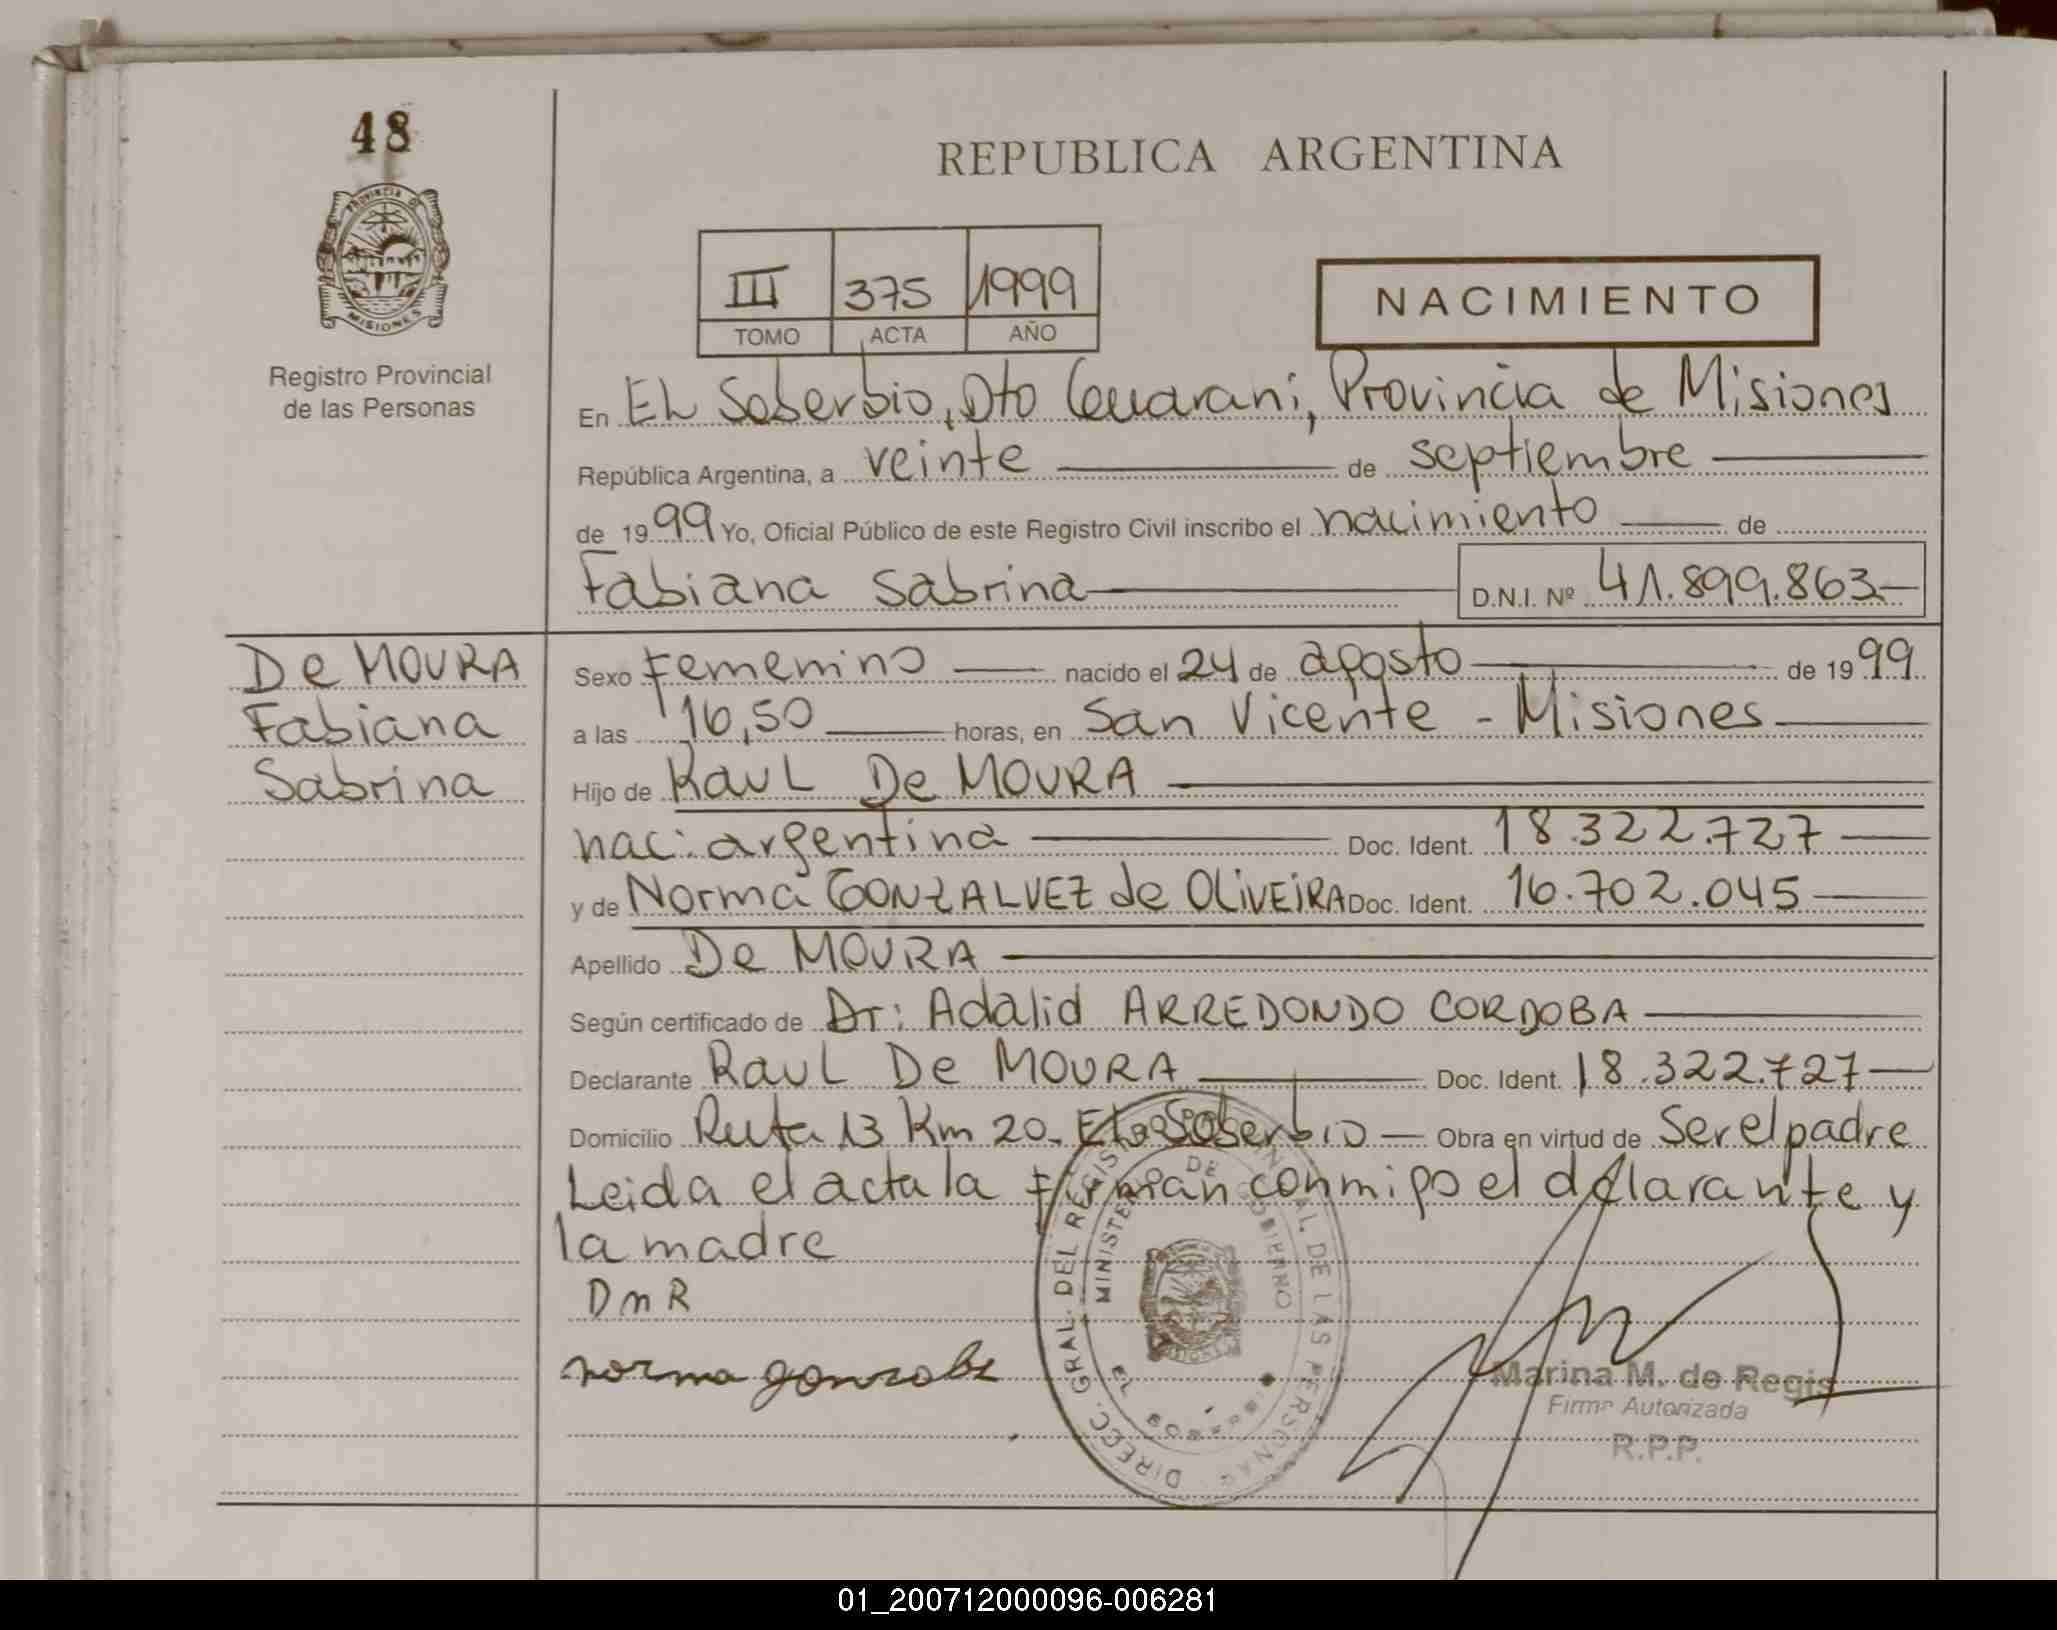 48
PROVINCIA D
MISIONES
Registro Provincial
de las Personas
REPUBLICA ARGENTINA
III 375 1999
TOMO ACTA AÑO
NACIMIENTO
En EL Soberbio, Dto Guarani, Provincia de Misiones
República Argentina, a veinte de septiembre
de 1999 Yo, Oficial Público de este Registro Civil inscribo el nacimiento de
Fabiana Sabrina D.N.I. Nº 41.899.863
De MOURA
Fabiana
Sabrina
Sexo Femenino nacido el 24 de agosto de 1999
a las 16,50 horas, en San Vicente - Misiones
Hijo de RauL De MOURA
nac: argentina Doc. Ident. 18.322.727
y de Norma GONZALVEZ de OLiVEiRA Doc. Ident. 16.702.045
Apellido De MOURA
Según certificado de Dr: Adalid ARREDONDO CORDOBA
Declarante RauL De MOURA Doc. Ident. 18.322.727
Domicilio Ruta 13 Km 20. EL Soberbio Obra en virtud de Ser el padre
Leida el acta la firman conmigo el declarante y
la madre
DmR
norma
DIRECC. GRAL. DEL REGIST. PROVINCIAL DE LAS PERSONAS
MINISTERIO DE GOBIERNO
EL SOBERBIO
MISIONES
Marina M. de Regis
Firma Autorizada
R.P.P.
01_200712000096-006281